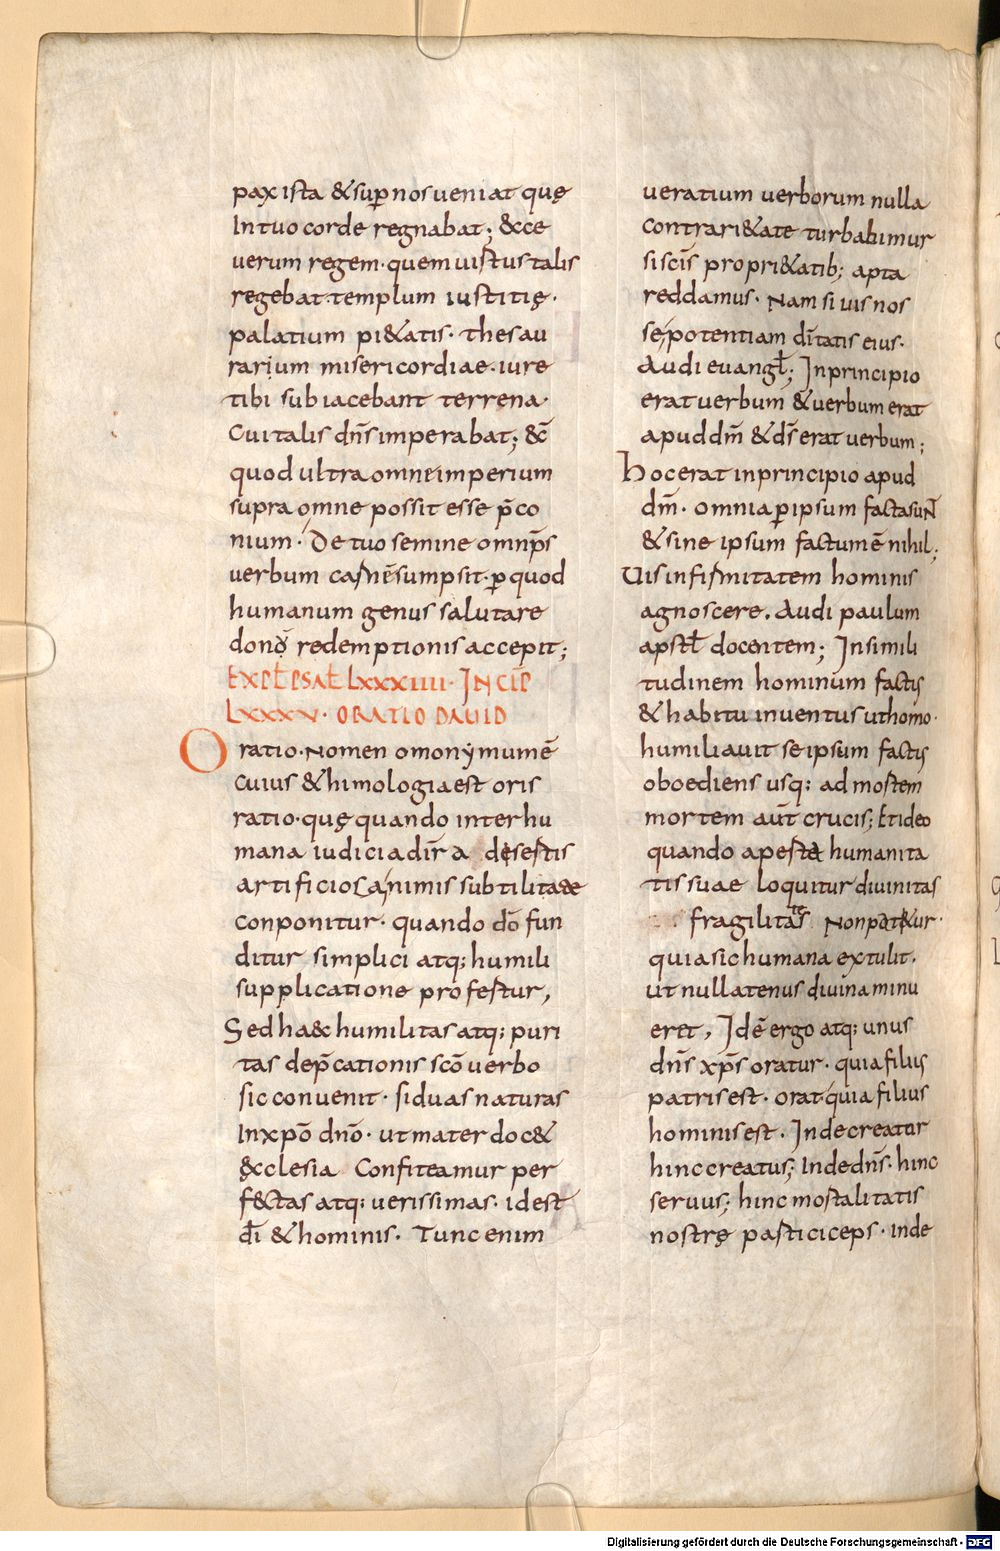 pax ista & sup̄ nos ueniat quę
In tuo corde regnabat; &cce
uerum regem· quem uirtus talis
regebat· templum iustitię·
palatium pi&atis· thesau
rarium misericordiae· iure
tibi subiacebant terrena·
Cui talis dn̄s imperabat; &c̄
quod ultra omne imperium
supra omne possit esse p̄co
nium· De tuo semine omnp̄s
uerbum carnē sumpsit· ꝑ quod
humanum genus salutare
donę redemptionis accepit;
EXPL̄ PSAL̄ LXXXIIII· INCIP̄
LXXXV· ORATIO DAUID
Oratio· Nomen omonẏmum ē
cuius & himologia est oris
ratio· quę quando inter hu
mana iudicia dir̄a desertis
artificiosa animis subtilitate
conponitur· quando dō fun
ditur simplici atq; humili
supplicatione profertur,
Sed haec humilitas atq; puri
tas dep̄cationis sc̄o uerbo
sic conuenit· si duas naturas
In xp̄o dn̄o· ut mater doc&
ęcclesia Confiteamur per
f&ctas atq; uerissimas· id est
dī & hominis· Tunc enim
ueratium uerborum nulla
contrari&ate turbabimur
si scīs propri&atib; apta
reddamus· Nam si uis nos
se potentiam dītatis eius·
Audi euangl̄; In principio
erat uerbum & uerbum erat
apud dm̄ & ds̄ erat uerbum;
hoc erat in principio apud
dm̄· omnia ꝑ ipsum facta suN̄
& sine ipsum factum ē nihil;
Uis infirmitatem hominis
agnoscere. Audi paulum
apstl̄ docentem; In simili
tudinem hominum factus
& habitu inuentus ut homo·
humiliauit se ipsum factus
oboediens usq; ad mortem
mortem aut̄ crucis; Et ideo
quando aperte humanita
tis suae loquitur diuinitas
fragilitate Non pat&ur·
quia sic humana extulit·
ut nullatenus diuina minu
eret, Idē ergo atq; unus
dn̄s xp̄s oratur· quia filius
patris est· orat quia filius
hominis est· Inde creatur
hinc creatus; Inde dn̄s· hinc
seruus; hinc mortalitatis
nostrę particiceps· inde
Digitalisierung gefördert durch die Deutsche Forschungsgemeinschaft - DFG